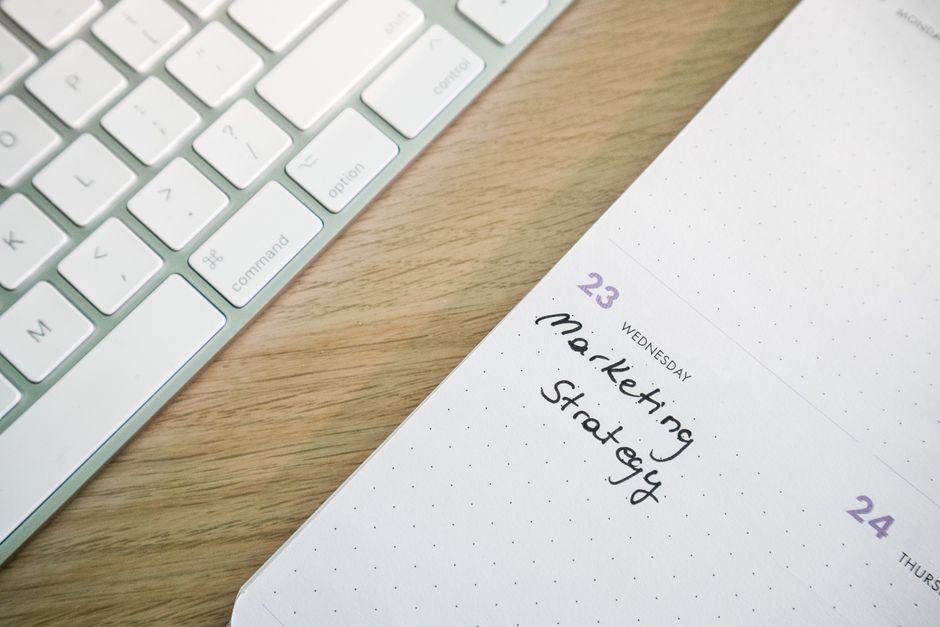 shift
control
option
command
P
O
L
K
M
[
{
"
'
:
;
?
/
>
.
<
,
⌘
⌥
^
MONDAY
23
WEDNESDAY
Marketing
Strategy
24
THURS